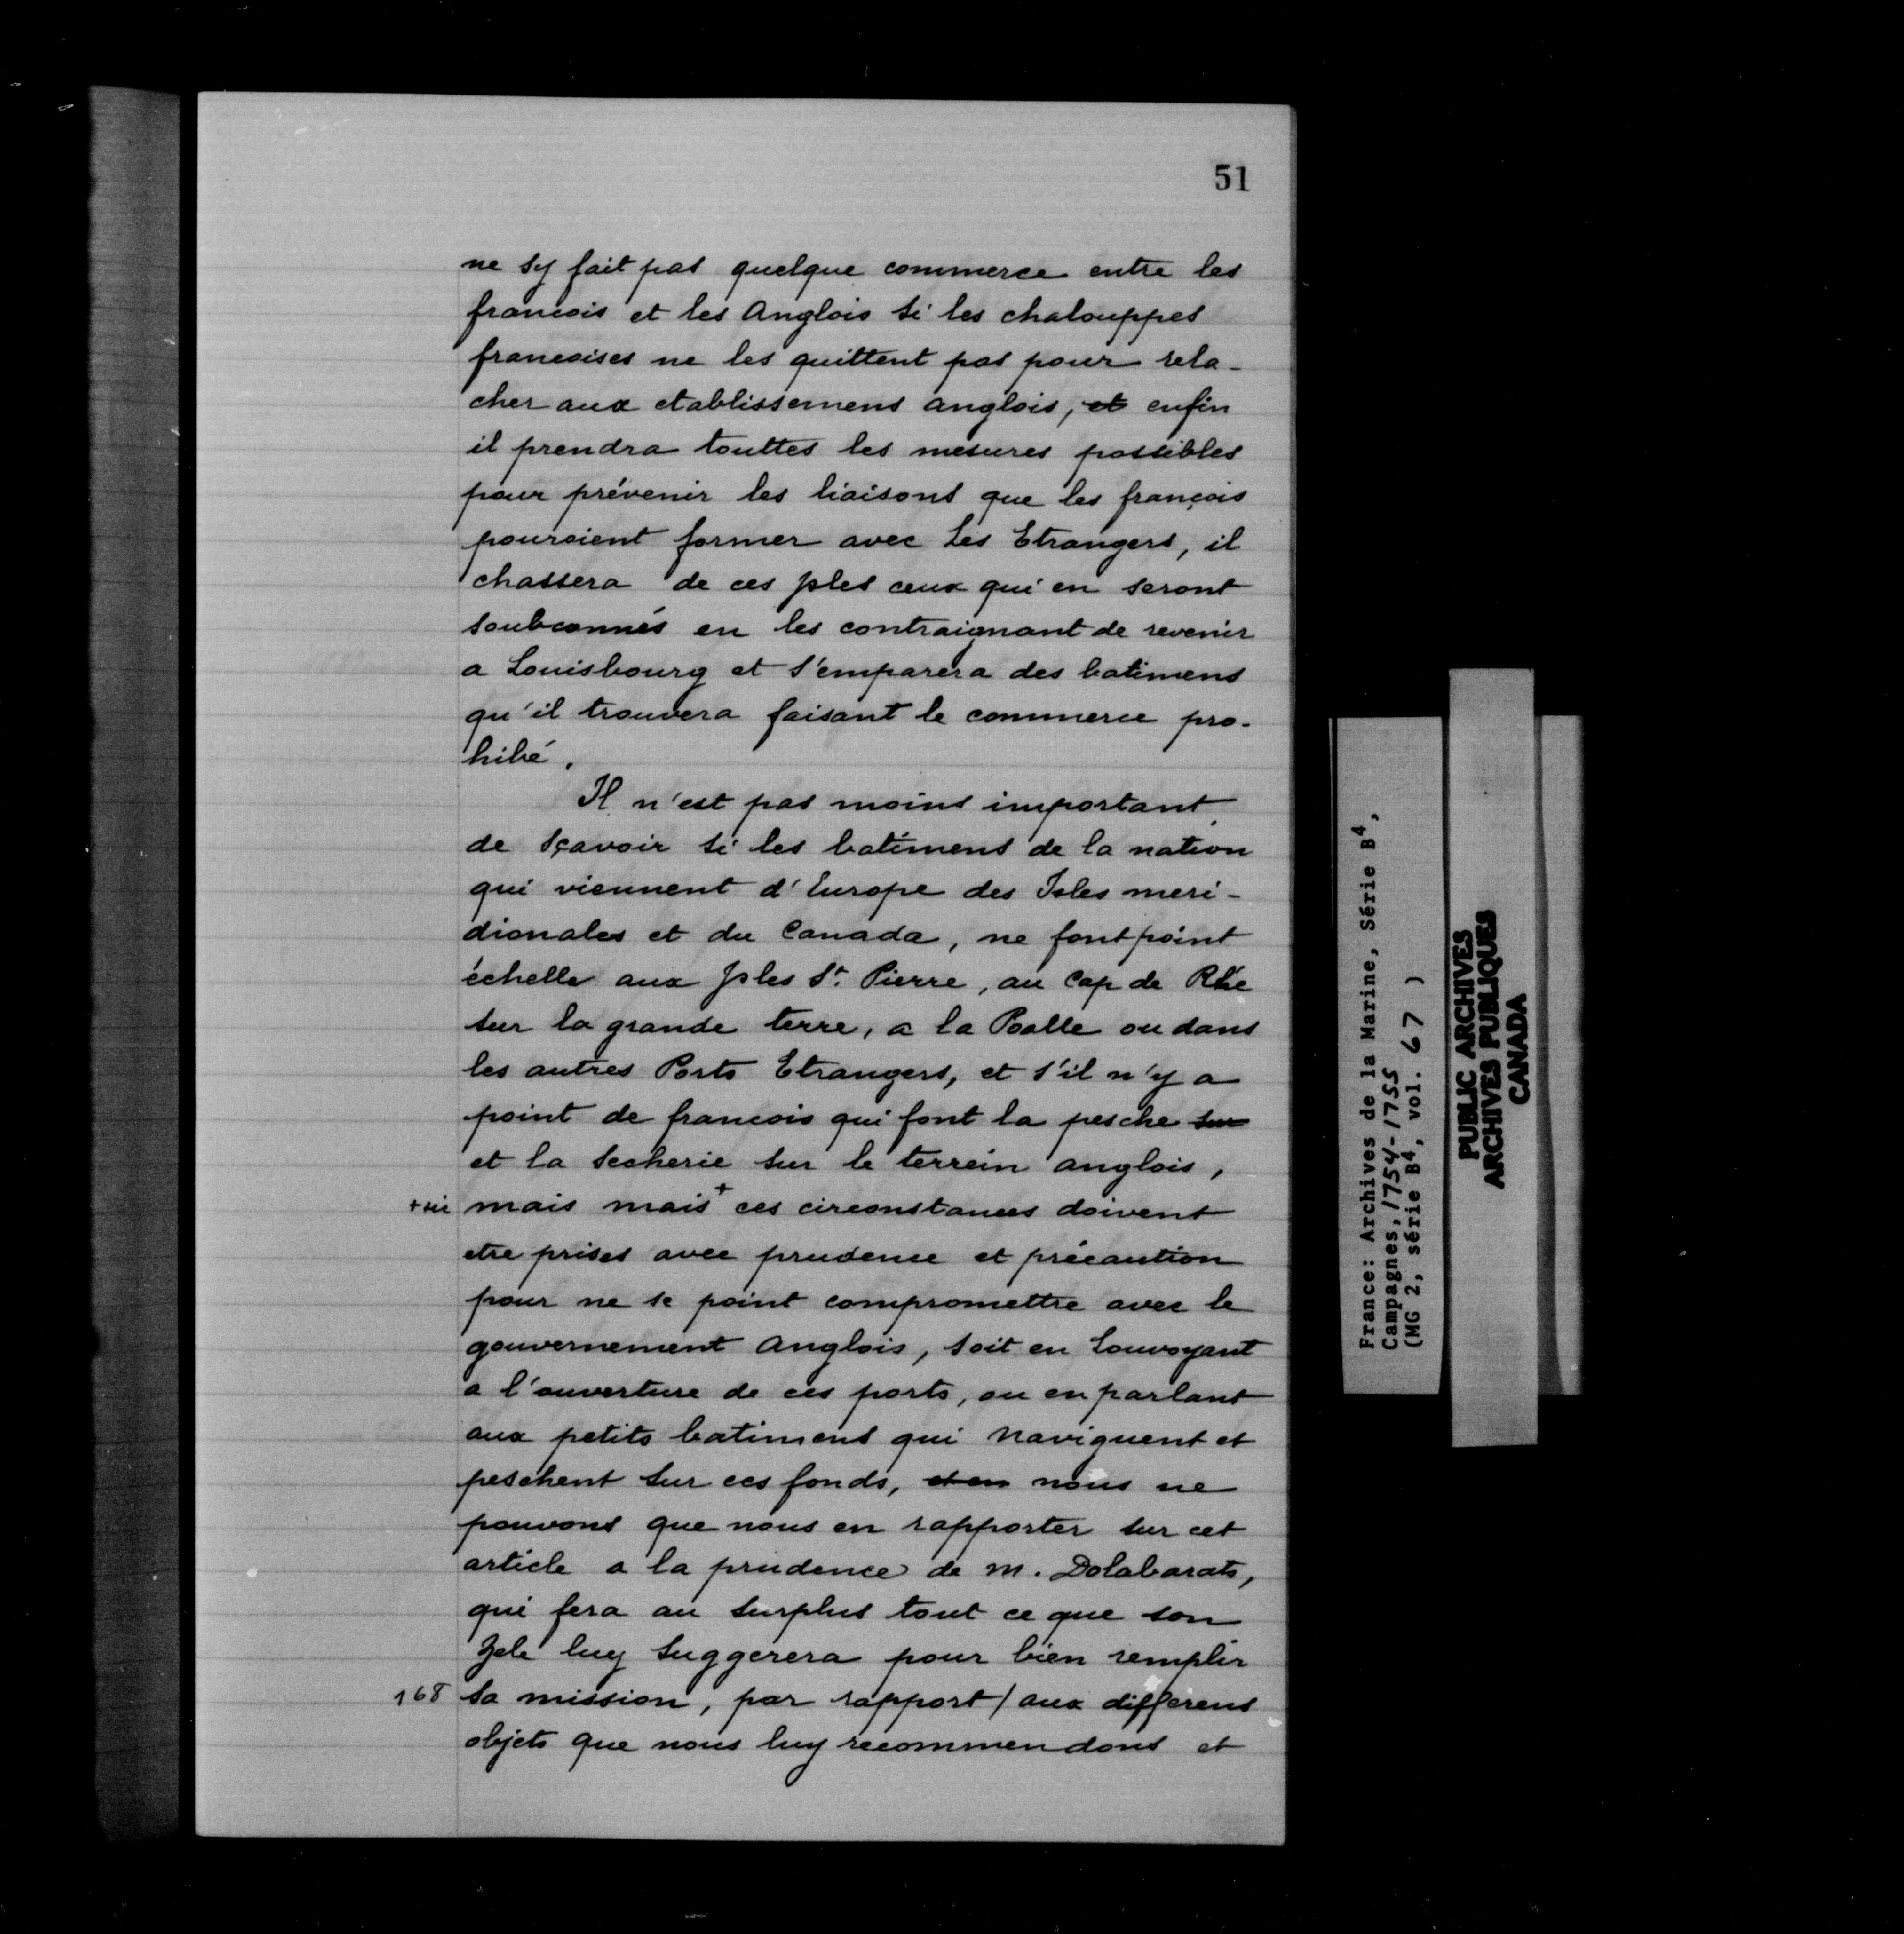 51
ne sy fait pas quelque commerce entre les
francois et les Anglois si les chalouppes
francoises ne les quittent pas pour rela-
cher aux etablissemens anglois, et enfin
il prendra touttes les mesures possibles
pour prévenir les liaisons que les françois
pouroient former avec les Etrangers, il
chassera de ces Isles ceux qui en seront
soubconnés en les contraignant de revenir
a Louisbourg et s'emparera des batimens
qu'il trouvera faisant le commerce pro-
hibé.
Il n'est pas moins important
de sçavoir si les batimens de la nation
qui viennent d'Europe des Isles meri-
dionales et du Canada, ne font point
échelle aux Isles St. Pierre, au Cap de Rhé
sur la grande terre, a la Poalle ou dans
les autres Ports Etrangers, et s'il n'y a
point de francois qui font la pesche sur
et la secherie sur le terrein anglois,
+sic mais mais+ ces circonstances doivent
etre prises avec prudence et précaution
pour ne se point compromettre avec le
gouvernement Anglois, soit en Louvoyant
a l'ouverture de ces ports, ou en parlant
aux petits batimens qui naviguent et
peschent sur ces fonds, et en nous ne
pouvons que nous en rapporter sur cet
article a la prudence de M. Dolabarats,
qui fera au surplus tout ce que son
Zele luy suggerera pour bien remplir
168 sa mission, par rapport/aux differens
objets que nous luy recommendons et
France: Archives de la Marine, Série B4,
Campagnes, 1754-1755
(MG 2, série B4, vol. 67 )
PUBLIC ARCHIVES
ARCHIVES PUBLIQUES
CANADA